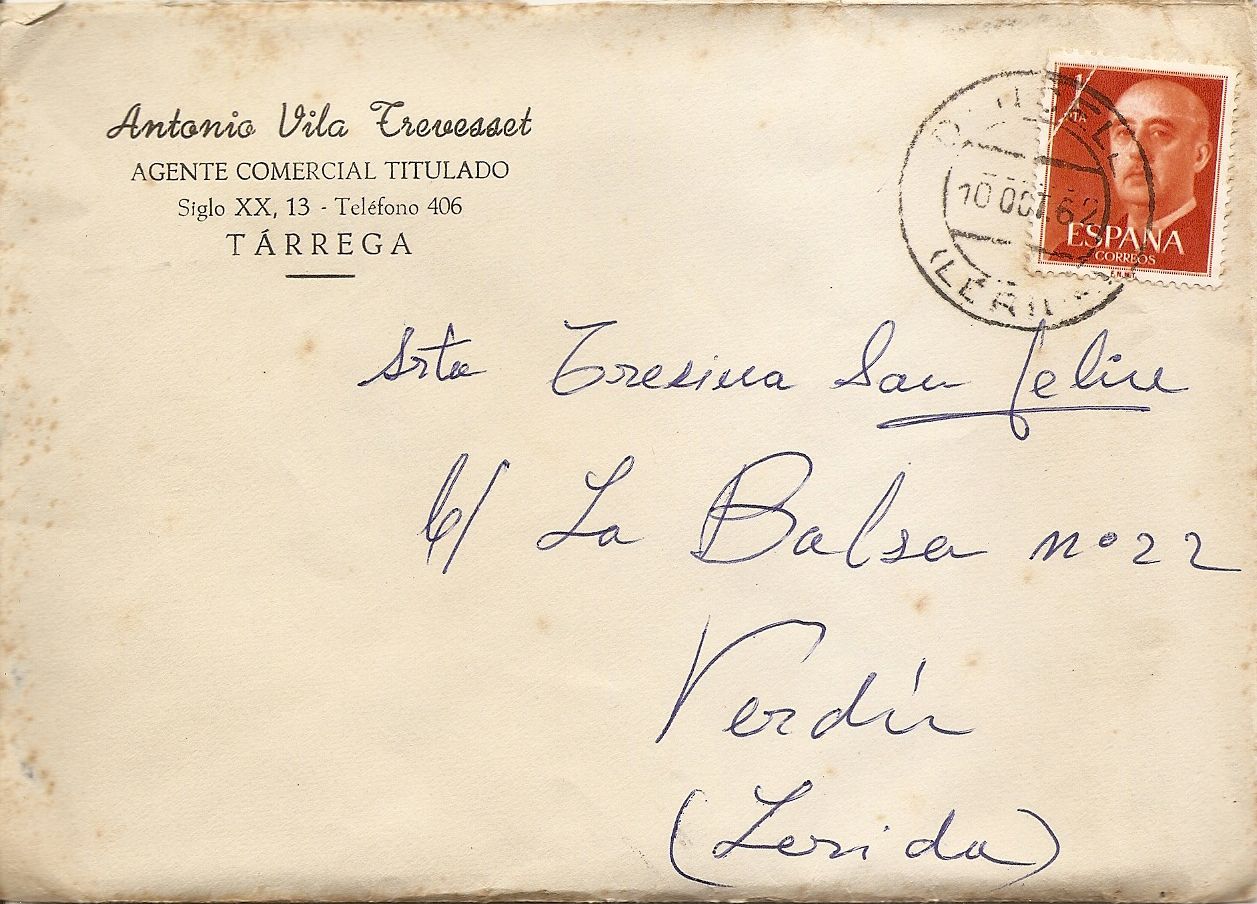 Antonio Vila Trevesset
AGENTE COMERCIAL TITULADO
Siglo XX, 13 - Teléfono 406
TÁRREGA
1
PTA
ESPAÑA
CORREOS
F.N.M.T.
10 OCT. 62
Srta Tresina San Feliu
C/ La Balsa nº 22
Verdú
(Lerida)